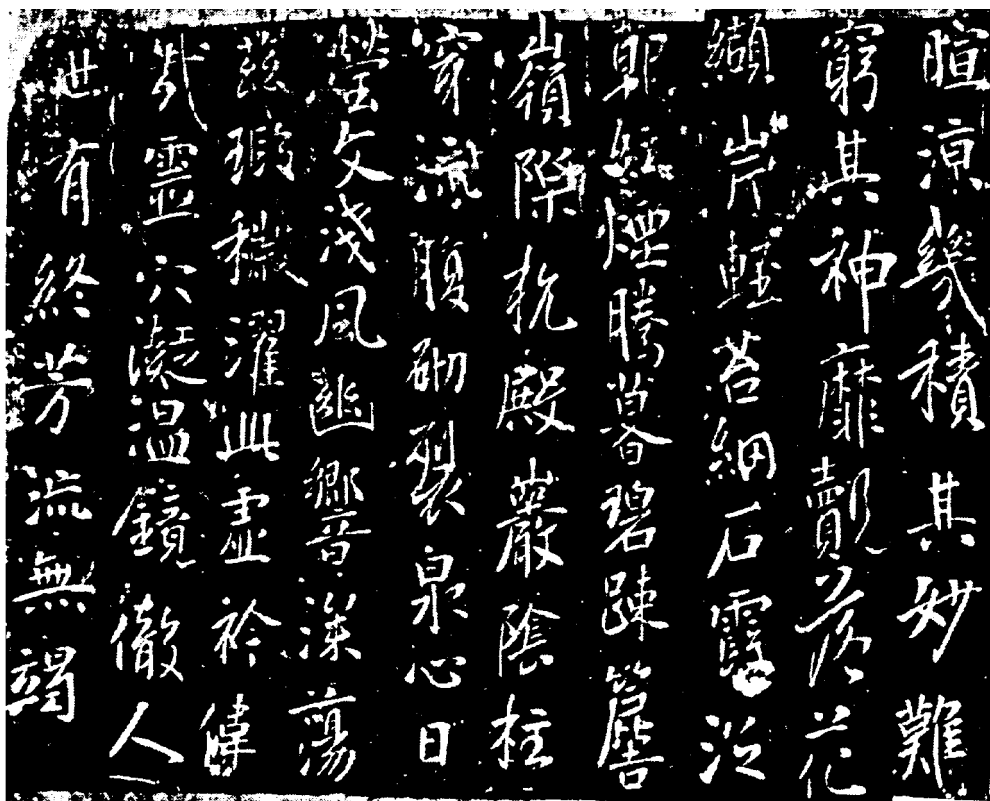 暄涼幾積其妙難
窮其神靡覿落花
纈岸輕苔網石霞泛
朝紅煙騰暮碧疎簷
嶺際抗殿巖陰柱
穿流腹砌裂泉心日
瑩文淺風幽響深蕩
茲瑕穢濯此虛衿偉
哉靈穴凝温鏡徹人
世有終芳流無竭